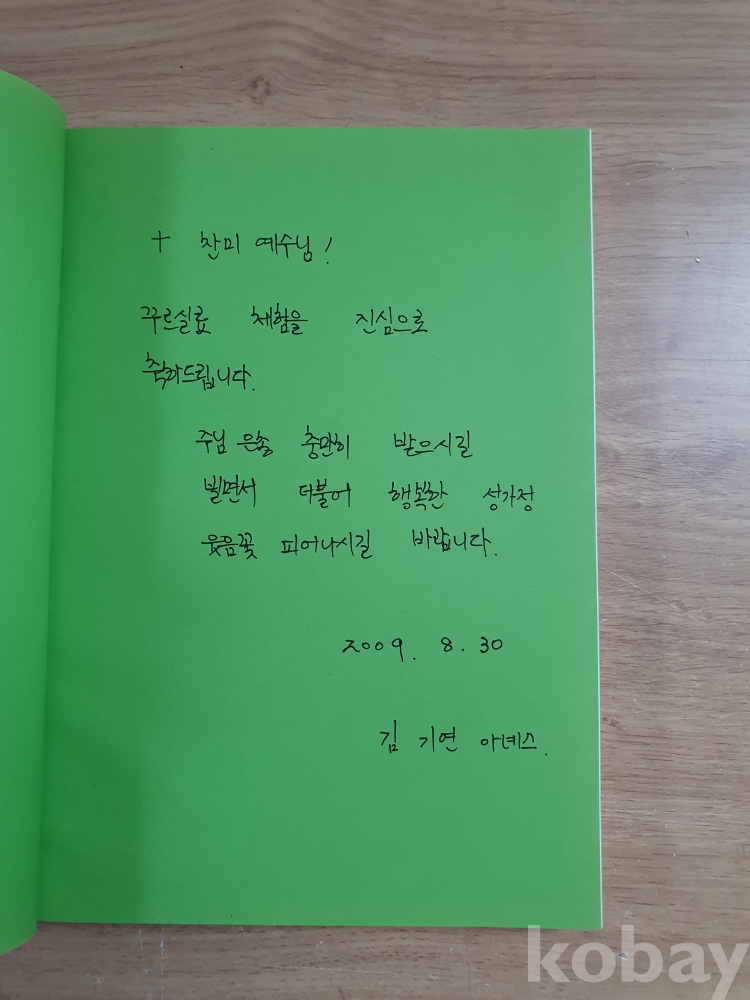 + 찬미 예수님!
꾸르실료 체험을 진심으로
축하드립니다.
주님 은총 충만히 받으시길
빌면서 더불어 행복한 성가정
웃음꽃 피어나시길 바랍니다.
2009. 8. 30
김 기연 아녜스.
kobay